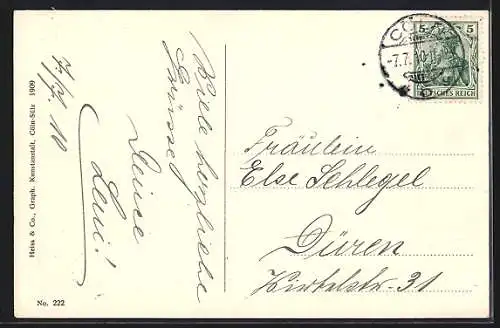 Heiss & Co., Graph. Kunstanstalt, Cöln-Sülz 1909
No. 222
7/7. 10
Viele herzliche
Grüsse
Deine
Leni!
CÖLN
-7.7.10.
5 5
DEUTSCHES REICH
Fräulein
Else Schlegel
Düren
Hirtelstr. 31